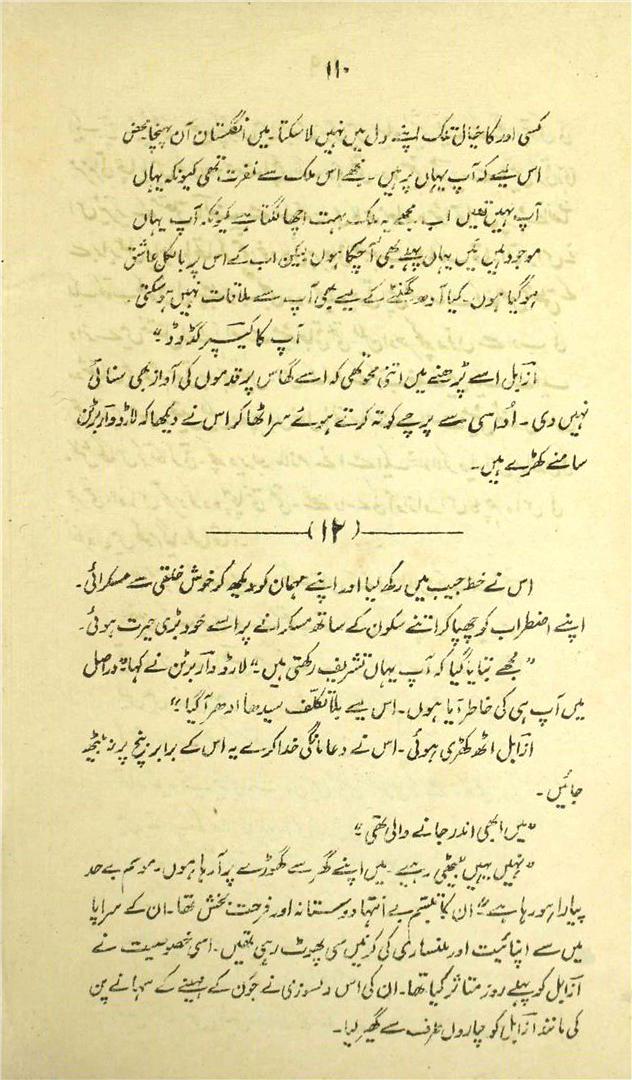 ۱۱۰
کسی اور کا خیال تک اپنے دل میں نہیں لا سکتا۔ میں انگلستان آن پہنچا محض
اس لیے کہ آپ یہاں پر ہیں۔ مجھے اس ملک سے نفرت تھی کیونکہ یہاں
آپ نہیں تھیں اب مجھے یہ ملک بہت اچھا لگتا ہے کیونکہ آپ یہاں
موجود ہیں میں یہاں پہلے بھی آ چکا ہوں لیکن اب کے اس پر بالکل عاشق
ہو گیا ہوں۔ کیا آدھ گھنٹے کے لیے بھی آپ سے ملاقات نہیں ہو سکتی۔
آپ کا کیسپر گڈوڈ"
ازابل اسے پڑھنے میں اتنی محو تھی کہ اسے گھاس پر قدموں کی آواز بھی سنائی
نہیں دی۔ اداسی سے پرچے کو تہ کرتے ہوئے سر اٹھا کر اس نے دیکھا کہ لارڈ واربرٹن
سامنے کھڑے ہیں۔
(۱۲)
اس نے خط جیب میں رکھ لیا اور اپنے مہمان کو دیکھ کر خوش خلقی سے مسکرائی۔
اپنے اضطراب کو چھپا کر اتنے سکون کے ساتھ مسکرانے پر اسے خود بڑی حیرت ہوئی۔
"مجھے بتایا گیا کہ آپ یہاں تشریف رکھتی ہیں۔" لارڈ واربرٹن نے کہا "دراصل
میں آپ ہی کی خاطر آیا ہوں۔ اس لیے بلا تکلف سیدھا ادھر آ گیا"
ازابل اٹھ کھڑی ہوئی۔ اس نے دعا مانگی خدا کرے یہ اس کے برابر بنچ پر نہ بیٹھ
جائیں۔
"میں ابھی اندر جانے والی تھی"
"نہیں یہیں بیٹھی رہیے۔ میں اپنے گھر سے گھوڑے پر آ رہا ہوں۔ موسم بے حد
پیارا ہو رہا ہے" ان کا تبسم بے انتہا دوستانہ اور فرحت بخش تھا۔ ان کے سراپا
میں سے اپنائیت اور ملنساری کی کرنیں سی پھوٹ رہی تھیں۔ اسی خصوصیت نے
ازابل کو پہلے روز متاثر کیا تھا۔ ان کی اس دلسوزی نے جون کے مہینے کے سہانے پن
کی مانند ازابل کو چاروں طرف سے گھیر لیا۔